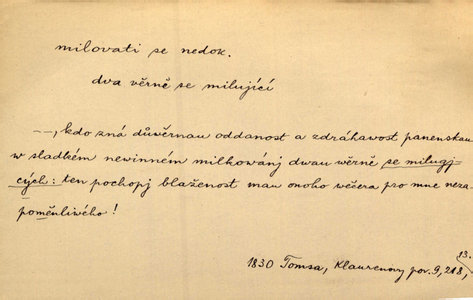 milovati se nedok.
dva věrně se milující
—, kdo zná důwěrnau oddanost a zdráhawost panenskau
w sladkém newinném milkowánj dwau wěrně se milugj-
cých: ten pochopj blaženost mau onoho wečera pro mne neza-
poměnliwého!
13.
1830 Tomsa, Klaurenovy pov. 9, 218,